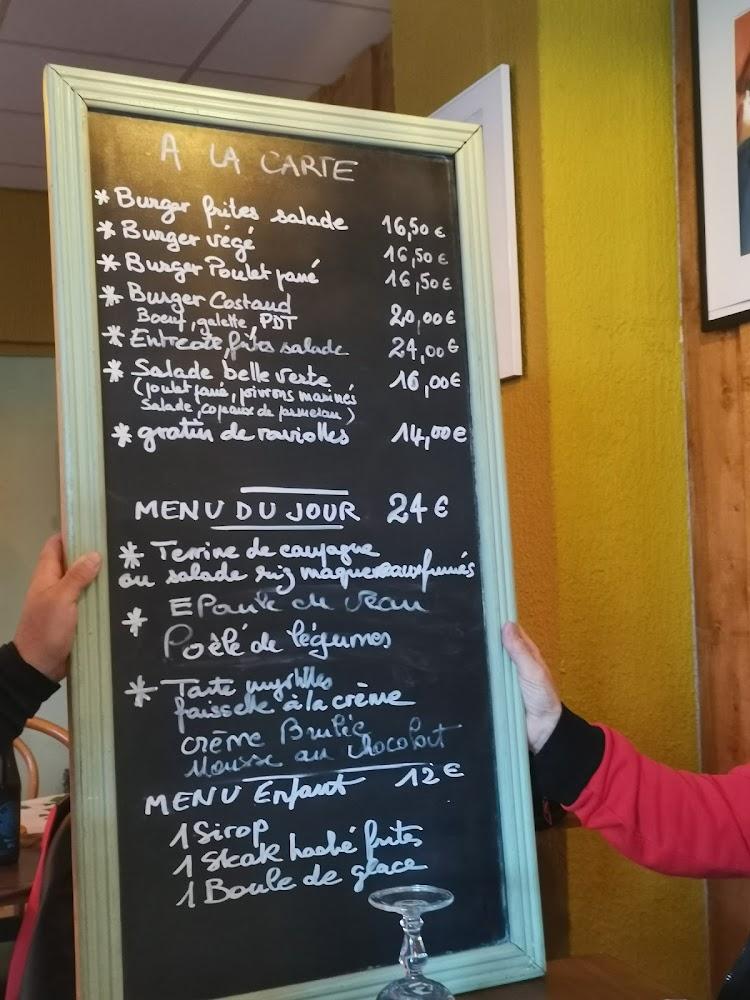 A LA CARTE
* Burger frites salade 16,50 €
* Burger végé 16,50 €
* Burger Poulet pané 16,50 €
* Burger Costaud 20,00 €
Boeuf, galette, PDT
* Entrecote, frites salade 24,00 €
* Salade belle verte 16,00 €
(poulet pané, poivrons marinés
Salade, copeaux de parmesan)
* gratin de raviolles 14,00 €
MENU DU JOUR 24 €
* Terrine de campagne
ou salade riz maquereaux fumés
* EPaule de Veau
Poèlé de légumes
* Tarte myrtilles
faisselle à la crème
crème Brulée
Mousse au chocolat
MENU Enfant 12 €
1 Sirop
1 Steak haché frites
1 Boule de glace